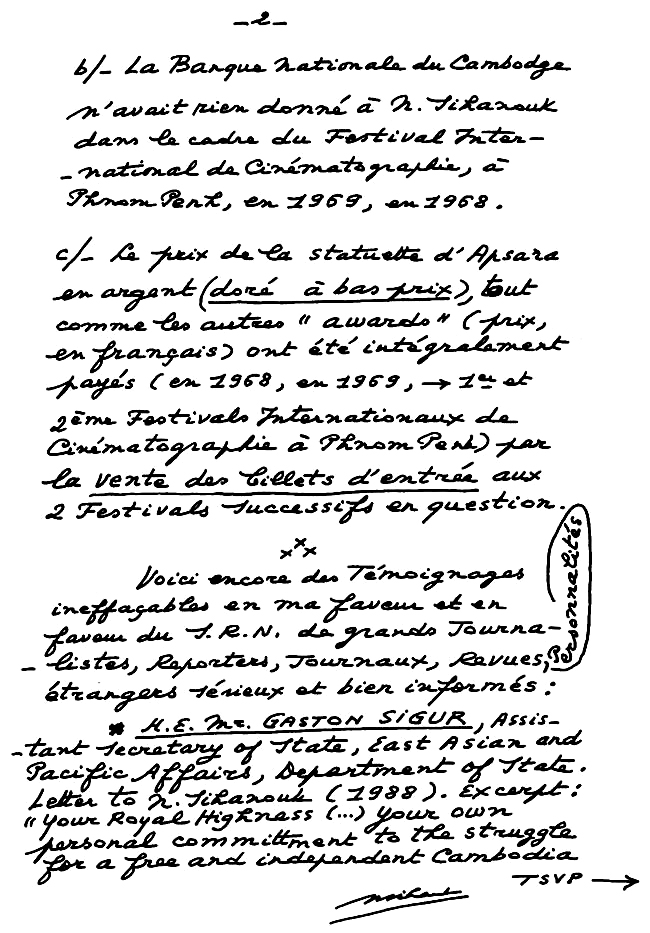 -2-
b/- La Banque Nationale du Cambodge
n'avait rien donné à N. Sihanouk
dans le cadre du Festival Inter-
-national de Cinématographie, à
Phnom Penh, en 1969, en 1968.
c/- Le prix de la statuette d'Apsara
en argent (doré à bas prix), tout
comme les autres "awards" (prix,
en français) ont été intégralement
payés (en 1968, en 1969, → 1er et
2ème Festivals Internationaux de
Cinématographie à Phnom Penh) par
la vente des billets d'entrée aux
2 Festivals successifs en question.
x x x
Voici encore des Témoignages
ineffaçables en ma faveur et en
faveur du S.R.N. de grands Journa-
-listes, Reporters, Journaux, Revues, Personnalités
étrangers sérieux et bien informés :
* H.E. Mr. GASTON SIGUR, Assis-
-tant Secretary of State, East Asian and
Pacific Affairs, Department of State.
Letter to N. Sihanouk (1988). Excerpt :
"Your Royal Highness (...) Your own
personal committment to the struggle
for a free and independent Cambodia
TSVP →